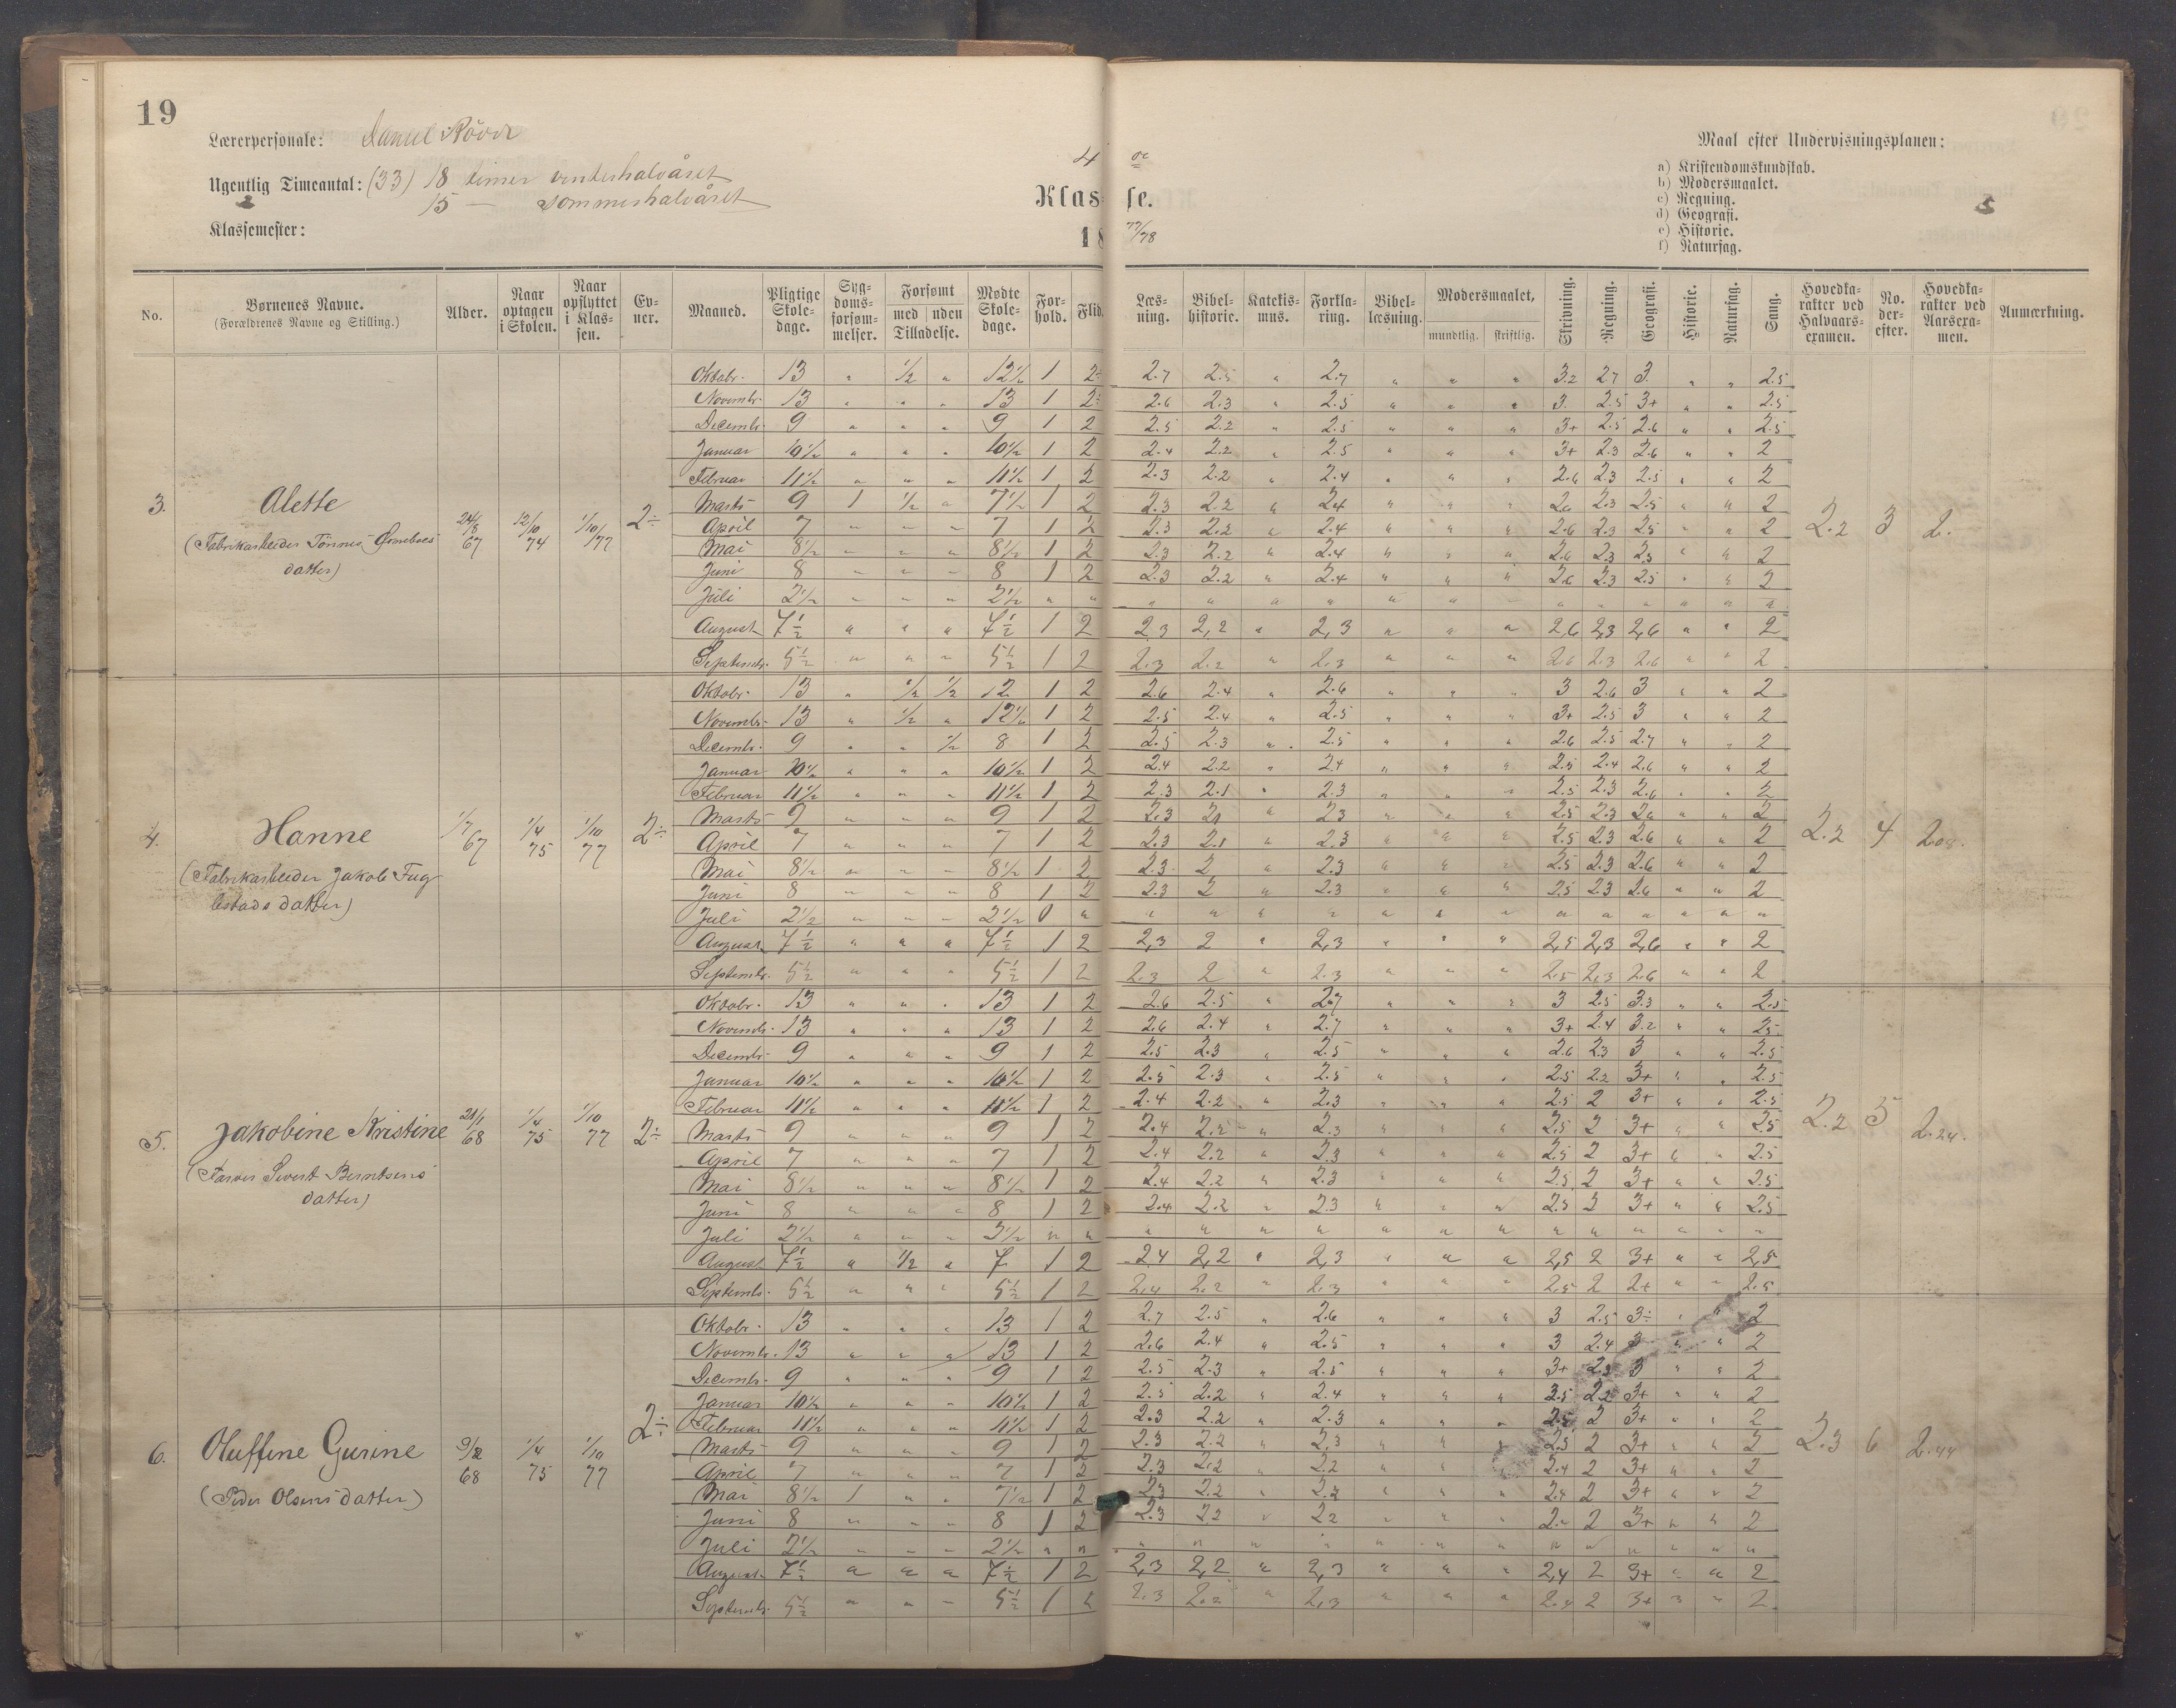 19
Lærerpersonale: Daniel
Ugentlig Timeantal: (33) 18 timer vinterhalvåret
15 — sommerhalvåret
Klassemester:
4 de
Klasse.
18 77/78
Maal efter Undervisningsplanen:
a) Kristendomskundskab.
b) Modersmaalet.
c) Regning.
d) Geografi.
e) Historie.
f) Naturfag.
No. Børnenes Navne. (Forældrenes Navne og Stilling.) Alder. Naar optagen i Skolen. Naar opflyttet i Klassen. Evner. Maaned. Pligtige Skoledage. Sygdomsforsømmelser. Forsømt med uden Tilladelse. Mødte Skoledage. Forhold. Flid. Læsning. Bibelhistorie. Katekismus. Forklaring. Bibellæsning. Modersmaalet, mundtlig. skriftlig. Skrivning. Regning. Geografi. Historie. Naturfag. Sang. Hovedkarakter ved Halvaarsexamen. No. derefter. Hovedkarakter ved Aarsexamen. Anmærkning.
3. Alette 24/8 67 12/10 74 1/10 77 2÷ 2.2 3 2.
(Fabrikarbeider Tönnes
datter)
Oktobr. 13 " 1/2 " 12 1/2 1 2÷ 2.7 2.5 " 2.7 " " " 3.2 2.7 3. " " 2.5
Novembr. 13 " " " 13 1 2÷ 2.6 2.3 " 2.5 " " " 3. 2.5 3+ " " 2.5
Decembr. 9 " " " 9 1 2 2.5 2.2 " 2.5 " " " 3+ 2.5 2.6 " " 2.5
Januar 10 1/2 " " " 10 1/2 1 2 2.4 2.2 " 2.5 " " " 3+ 2.3 2.6 " " 2
Februar 11 1/2 " " " 11 1/2 1 2 2.3 2.2 " 2.4 " " " 2.6 2.3 2.5 " " 2
Marts 9 1 1/2 " 7 1/2 1 2 2.3 2.2 " 2.4 " " " 2.6 2.3 2.5 " " 2
April 7 " " " 7 1 2 2.3 2.2 " 2.4 " " " 2.6 2.3 2.5 " " 2
Mai 8 1/2 " " " 8 1/2 1 2 2.3 2.2 " 2.4 " " " 2.6 2.3 2.5 " " 2
Juni 8 " " " 8 1 2 2.3 2.2 " 2.4 " " " 2.6 2.3 2.5 " " 2
Juli 2 1/2 " " " 2 1/2 " " " " " " " " " " " " " " "
August 7 1/2 " " " 7 1/2 1 2 2,3 2,2 " 2,3 " " " 2,6 2,3 2,6 " " 2
Septembr. 5 1/2 " " " 5 1/2 1 2 2.3 2.2 " 2.3 " " " 2.6 2.3 2.6 " " 2
4. Hanne 1/7 67 1/4 75 1/10 77 2÷ 2.2 4 2.08.
(Fabrikarbeider Jakob Fug
lestads datter)
Oktobr. 13 " 1/2 1/2 12 1 2 2.6 2.4 " 2.6 " " " 3 2.6 3 " " 2
Novembr. 13 " 1/2 " 12 1/2 1 2 2.5 2.4 " 2.5 " " " 3+ 2.5 3 " " 2
Decembr. 9 " " 1/2 8 1 2 2.5 2.3 " 2.5 " " " 2.6 2.5 2.7 " " 2
Januar 10 1/2 " " " 10 1/2 1 2 2.4 2.2 " 2.4 " " " 2.5 2.4 2.6 " " 2
Februar 11 1/2 " " " 11 1/2 1 2 2.3 2.1 " 2.3 " " " 2.5 2.3 2.6 " " 2
Marts 9 " " " 9 1 2 2.3 2.1 " 2.3 " " " 2.5 2.3 2.6 " " 2
April 7 " " " 7 1 2 2.3 2.1 " 2.3 " " " 2.5 2.3 2.6 " " 2
Mai 8 1/2 " " " 8 1/2 1 2 2.3 2 " 2.3 " " " 2.5 2.3 2.6 " " 2
Juni 8 " " " 8 1 2 2.3 2 " 2.3 " " " 2.5 2.3 2.6 " " 2
Juli 2 1/2 " " " 2 1/2 0 " " " " " " " " " " " " " "
August 7 1/2 " " " 7 1/2 1 2 2,3 2 " 2,3 " " " 2,5 2,3 2,6 " " 2
Septembr. 5 1/2 " " " 5 1/2 1 2 2.3 2 " 2.3 " " " 2.5 2.3 2.6 " " 2
5. Jakobine Kristine 21/1 68 1/4 75 1/10 77 2÷ 2.2 5 2.24.
(Farver Sivert Berntsens
datter)
Oktobr. 13 " " " 13 1 2 2.6 2.5 " 2.7 " " " 3 2.5 3.3 " " 2.5
Novembr. 13 " " " 13 1 2 2.6 2.4 " 2.7 " " " 3+ 2.4 3.2 " " 2.5
Decembr. 9 " " " 9 1 2 2.5 2.3 " 2.5 " " " 2.6 2.3 3 " " 2.5
Januar 10 1/2 " " " 10 1/2 1 2 2.5 2.3 " 2.5 " " " 2.5 2.2 3+ " " 2.5
Februar 11 1/2 " " " 11 1/2 1 2 2.4 2.2 " 2.3 " " " 2.5 2 3+ " " 2.5
Marts 9 " " " 9 1 2 2.4 2.2 " 2.3 " " " 2.5 2 3+ " " 2.5
April 7 " " " 7 1 2 2.4 2.2 " 2.3 " " " 2.5 2 3+ " " 2.5
Mai 8 1/2 " " " 8 1/2 1 2 2.4 2.2 " 2.3 " " " 2.5 2 3+ " " 2.5
Juni 8 " " " 8 1 2 2.4 2.2 " 2.3 " " " 2.5 2 3+ " " 2.5
Juli 2 1/2 " " " 2 1/2 " " " " " " " " " " " " " " "
August 7 1/2 " 1/2 " 7 1 2 2,4 2,2 " 2,3 " " " 2,5 2 3+ " " 2,5
Septembr. 5 1/2 " " " 5 1/2 1 2 2.4 2.2 " 2.3 " " " 2.5 2 2+ " " 2.5
6. Oluffine Gurine 9/2 68 1/4 75 1/10 77 2÷ 2.3 6 2.44
(Peder Olsens datter)
Oktobr. 13 " " " 13 1 2 2.7 2.5 " 2.6 " " " 3 2.5 3÷ " " 2
Novembr. 13 " " " 13 1 2 2.6 2.4 " 2.5 " " " 3 2.4 3 " " 2
Decembr. 9 " " " 9 1 2 2.5 2.3 " 2.5 " " " 3+ 2.3 3 " " 2
Januar 10 1/2 " " " 10 1/2 1 2 2.5 2.2 " 2.4 " " " 2.5 2.2 3+ " " 2
Februar 11 1/2 " " " 11 1/2 1 2 2.3 2.2 " 2.3 " " " 2.5 2 3+ " " 2
Marts 9 " " " 9 1 2 2.3 2.2 " 2.3 " " " 2.5 2 3+ " " 2
April 7 " " " 7 1 2 2.3 2.2 " 2.2 " " " 2.4 2 3+ " " 2
Mai 8 1/2 1 " " 7 1/2 1 2 2.3 2.2 " 2.2 " " " 2.4 2 3+ " " 2
Juni 8 " " " 8 1 2 2.3 2.2 " 2.2 " " " 2 3+ " " 2
Juli 2 1/2 " " " 2 1/2 " " " " " " " " " " " " " " "
August 7 1/2 " " " 7 1/2 1 2 2,3 2,2 " 2,3 " " " 2,4 2 3+ " " 2
Septembr. 5 1/2 " " " 5 1/2 1 2 2.3 2.2 " 2.3 " " " 2.4 2 3+ " " 2